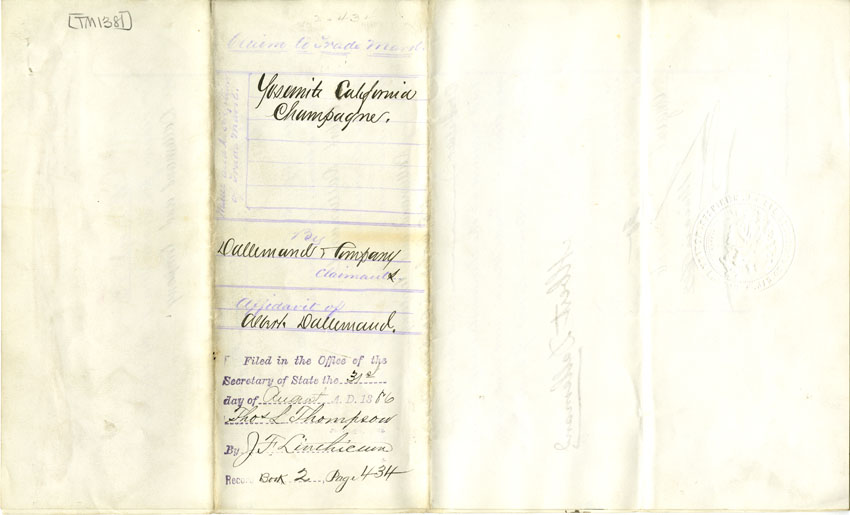 [TM1381]
Claim to Trade Mark.
Yosemite California
Champagne.
By
Dallemand & Company
Claimants
Affidavit of
Albert Dallemand.
Filed in the Office of the
Secretary of State the 31st
day of August A. D. 1886
Thos L Thompson
By J. F. Linthicum
Record Book 2 Page 434
Albert Dallemand